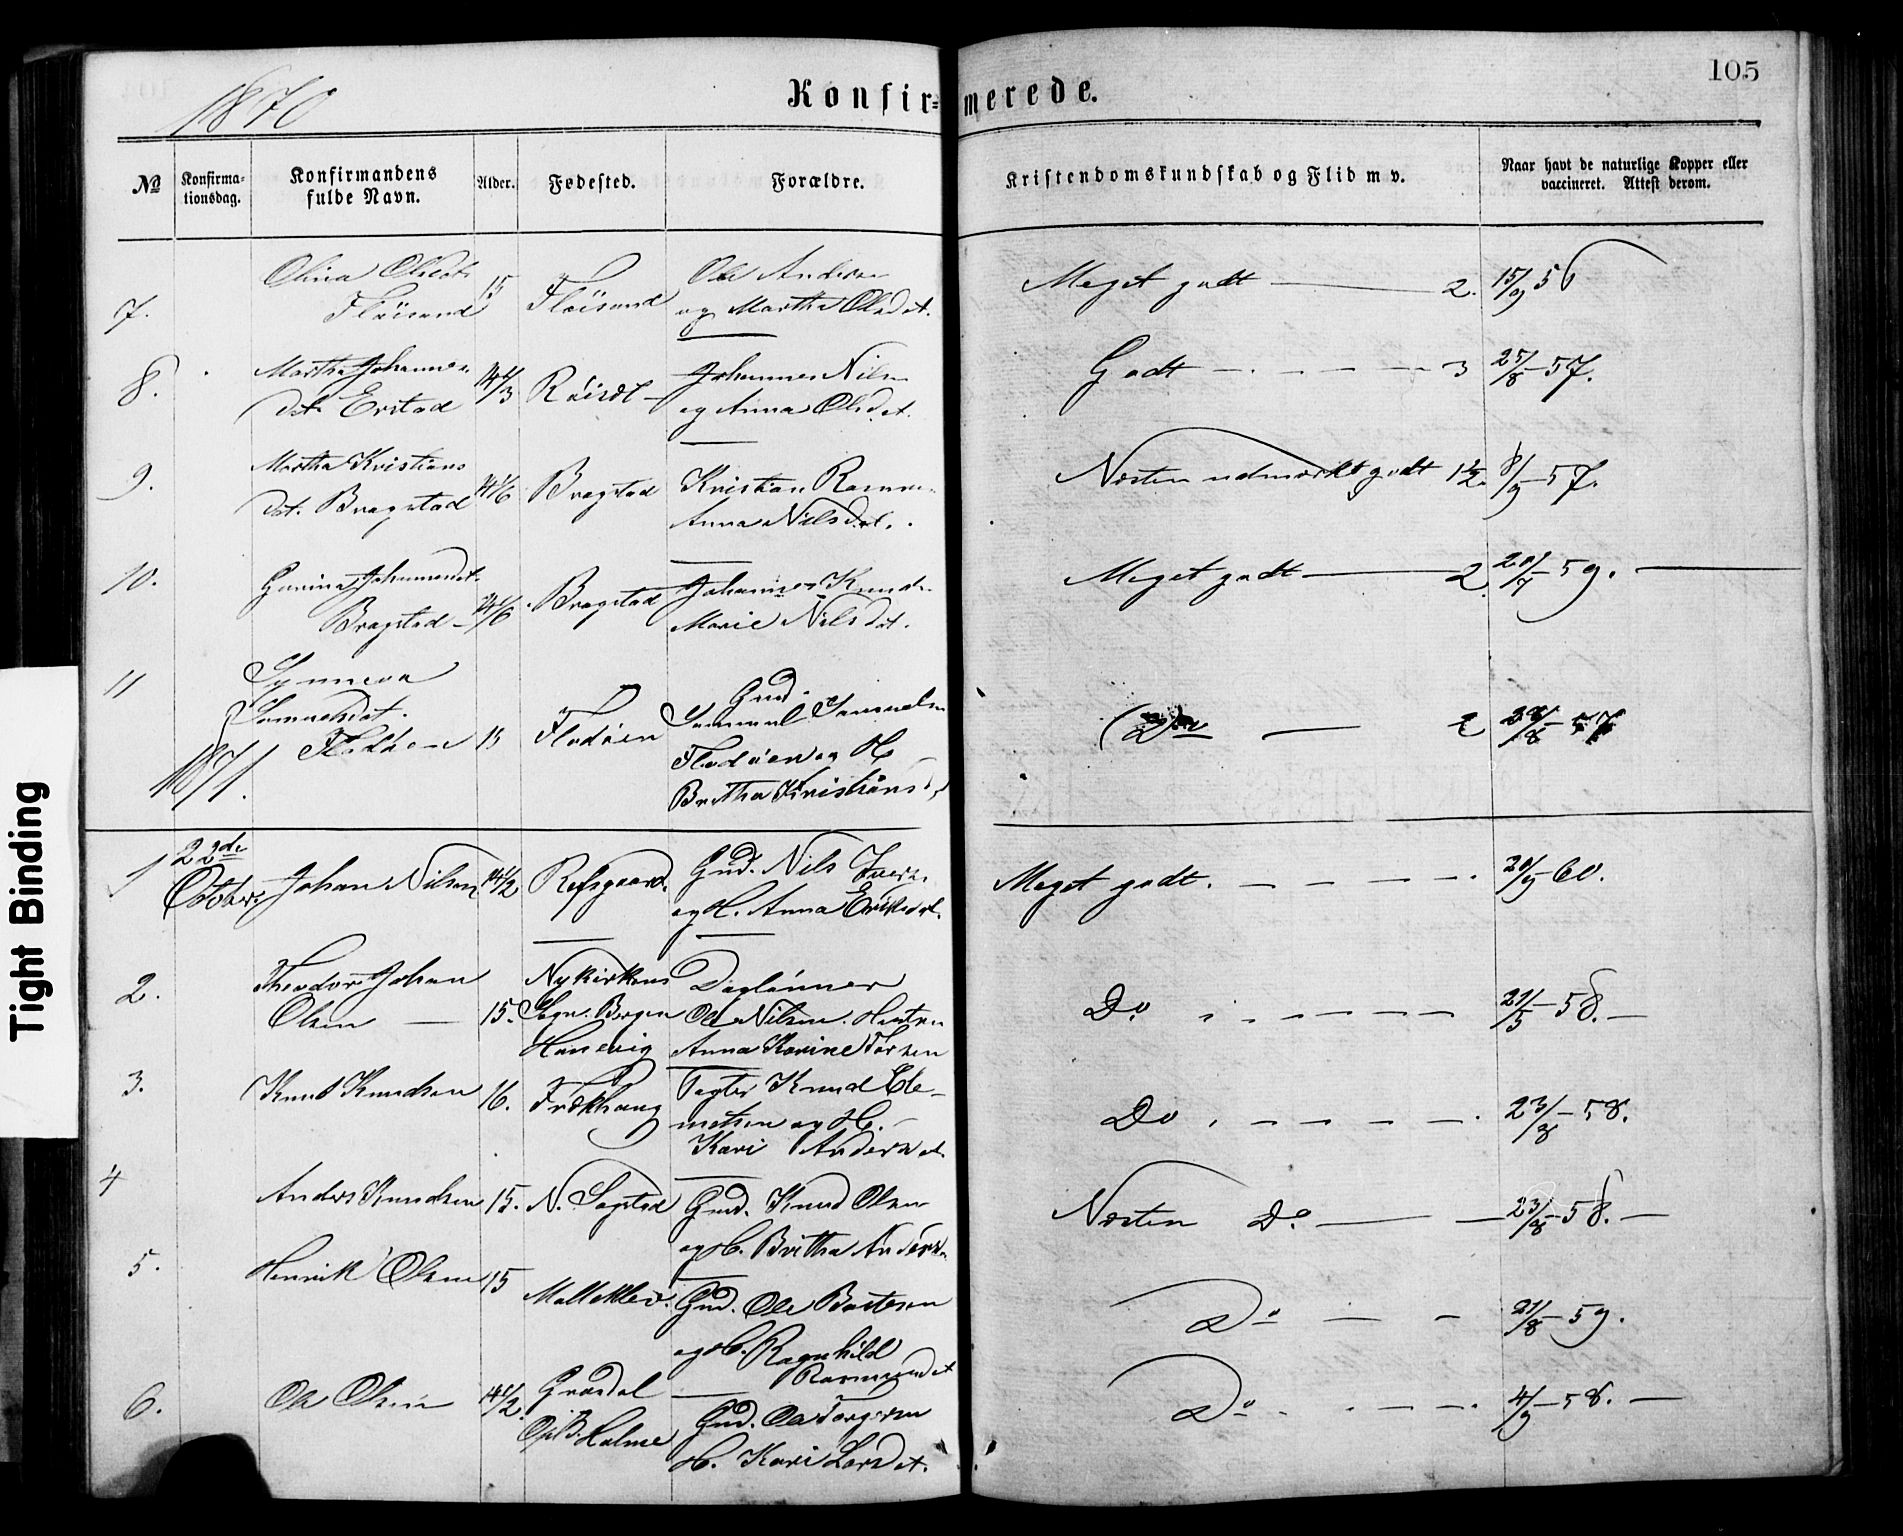 105
1870
Konfir-merede.
No
Konfirma-
tionsdag.
Konfirmandens
fulde Navn.
Alder.
Fødested.
Forældre.
Kristendomskundskab og Flid m v.
Naar havt de naturlige Kopper eller
vaccineret. Attest derom.
7.
Olina Olsdt.
Fløisand
15
Fløisand
Ole Andersen
og Martha Olsdat.
Meget godt — 2.
15/9 56
8.
Martha Johannes
dat. Erstad
14 1/3
Johannes Nilsen
og Anna Olsdat.
Godt — 3
25/8 - 57.
9.
Martha Kristians
dat. Bragstad
14 1/6
Bragstad
Kristian Rasmus
Anna Nilsdat.
Næsten udmærket godt 1 1/2.
8/9 - 57.
10.
Johannesdat.
Bragstad
14 1/6
Bragstad
Johannes Knuds
Marie Nilsdat.
Meget godt — 2
59.
11
Synneva
Samuelsdat.
Flodøen
15
Flodøen
Gmd.
Samuel Samuelsen
Flodøen og H
Britha Kristians
Do — 2
57
1871.
1
22de
October
Johan Nilsen
14 1/2
Refsgaard.
Gmd. Nils Iver
og H. Anna Eriksdat.
Meget godt.
60.
2.
Theodor Johan
Olsen —
15.
Nykirkens
Sogn. Bergen
Hanevig
Daglønner
Ole Nilsen. Hustru
Anna Karine
Do
21/5 - 58. —
3.
Knud Knudsen
16.
Frekhaug
Knud Cle-
metsen og H.
Kari Andersdat.
Do
23/8 - 58.
4
Anders Knudsen
15.
N. Sagstad
Gmd. Knud Olsen
og H. Britha Anders
Næsten Do —
23/8 - 58. —
5.
Henrik Olsen
15
Gmd. Ole
og H. Ragnhild
Rasmusdat
Do —
21/8 - 59.
6.
Ole Olsen
14 1/2.
Holme
Gmd. Ole
H. Kari Larsdat.
Do
4/9 - 58. —
Tight Binding